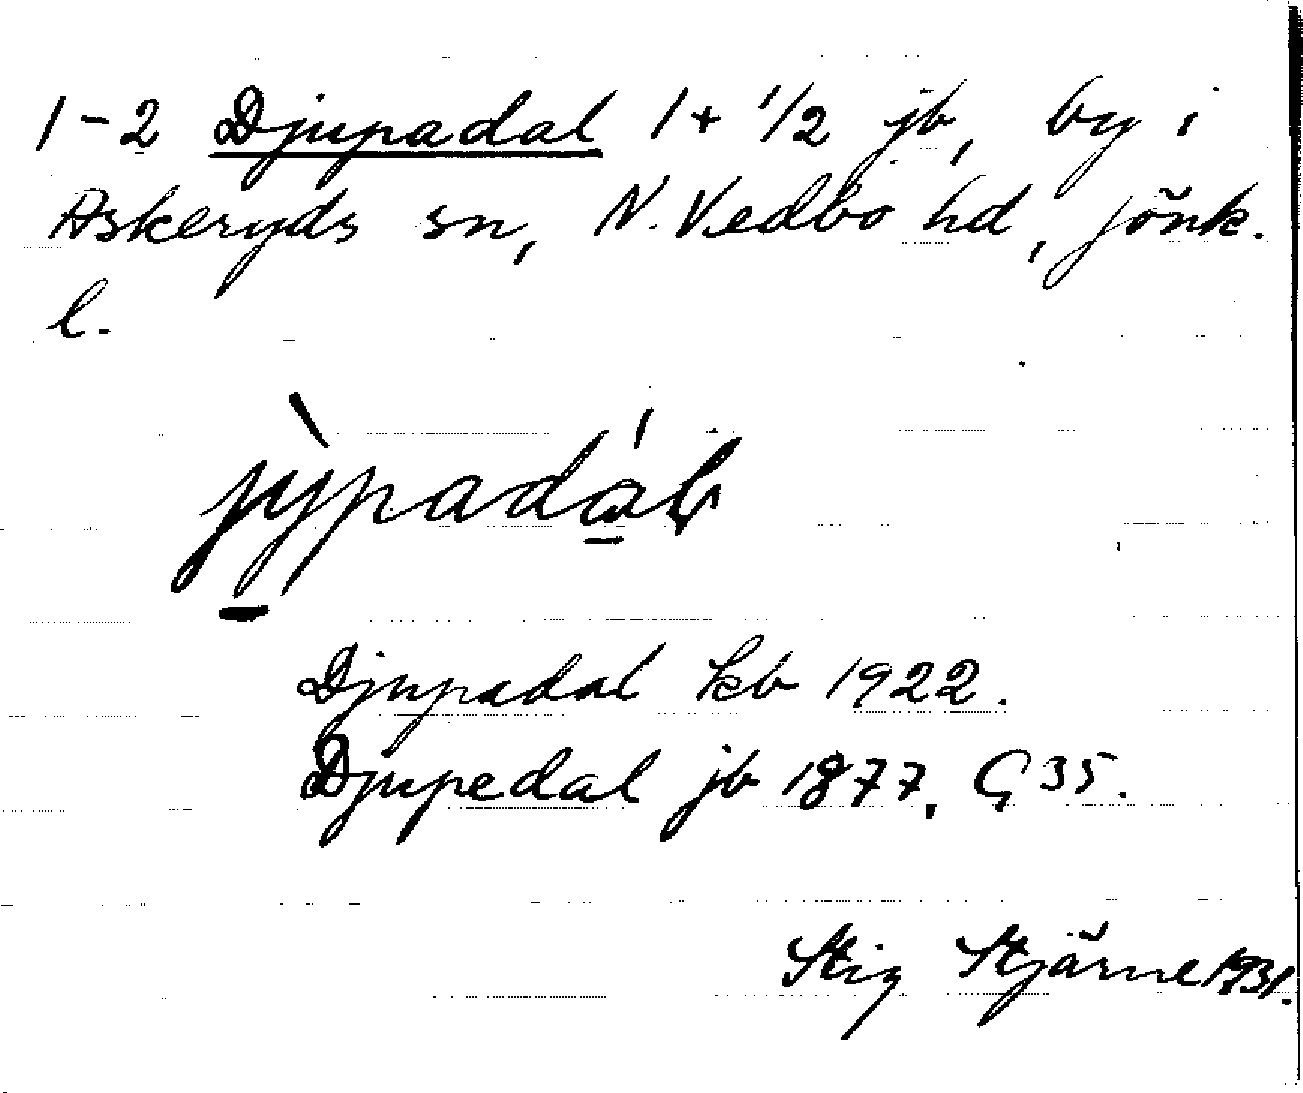 1-2 Djupadal 1+ 1/2 jb, by i
Askeryds sn, N. Vedbo hd, Jönk.
l.
jỳpadál
Djupadal kb 1922.
Djupedal jb 1877, G 35.
Stig Stjärne 1931.